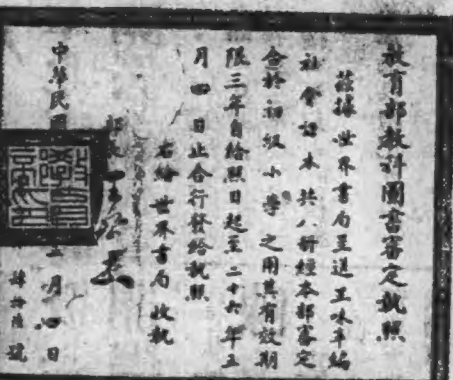 教育部教科圖書審定執照
茲據世界書局呈送王味辛編
社會課本共八冊經本部審定
合於初級小學之用其有效期
限三年自給照日起至二十六年五
月四日止合行發給執照
右給世界書局收執
部
中華民國 月四日
號